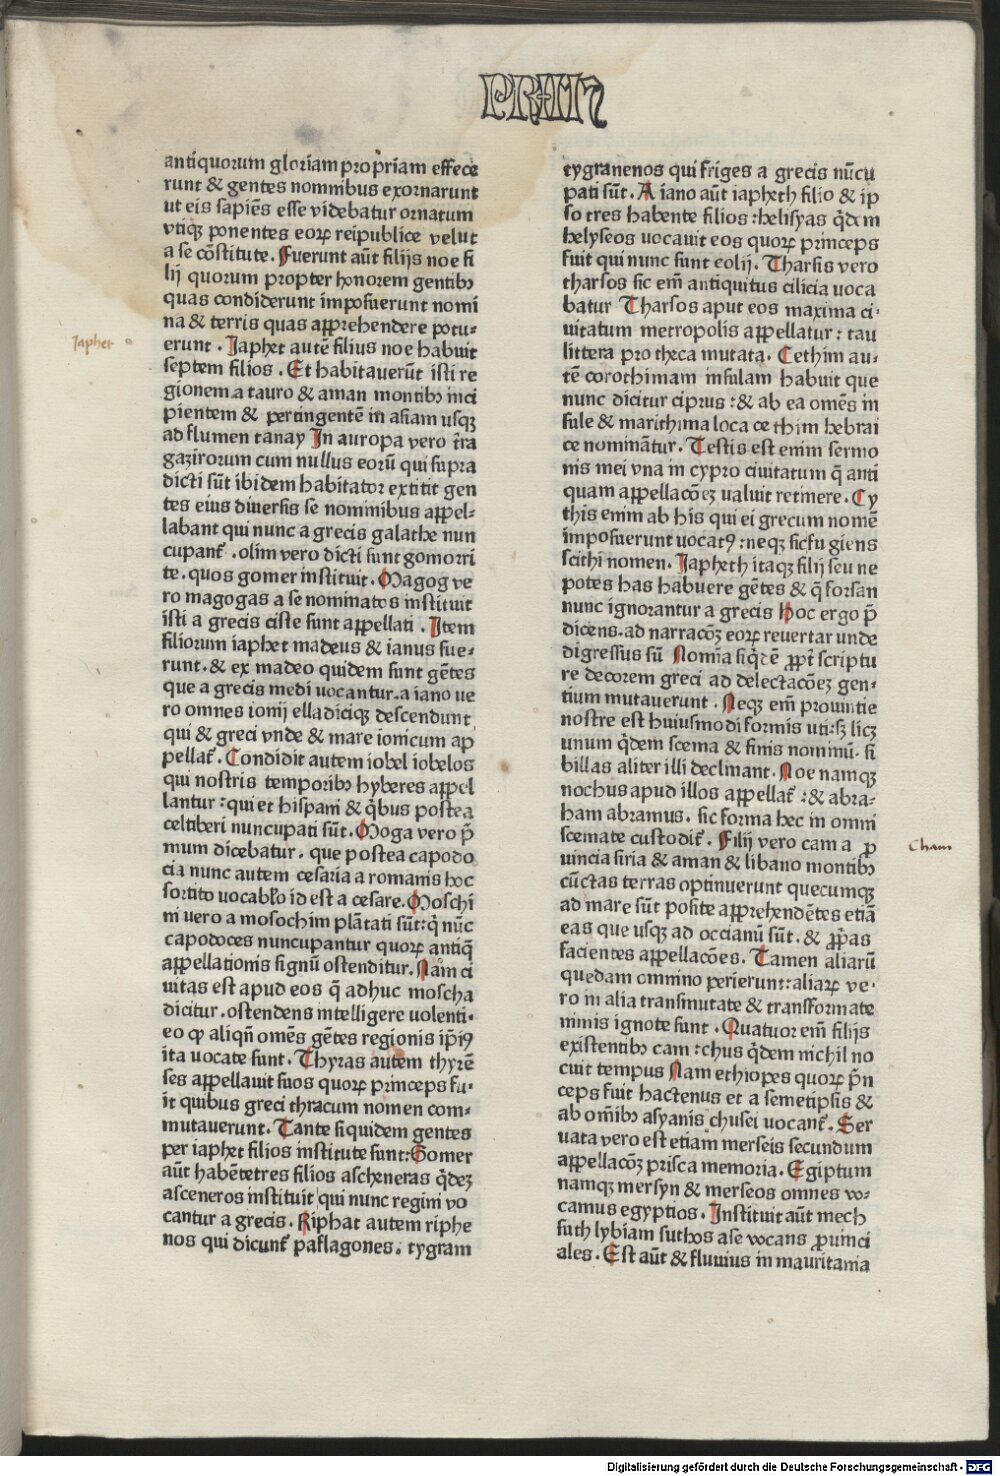 PRIMꝰ
antiquorum gloriam propriam effece
runt & gentes nominibus exornarunt
ut eis sapiēs esse videbatur ornatum
vtiqꝫ ponentes eoꝝ reipublice velut
a se cōstitute. Fuerunt aūt filijs noe fi
lij quorum propter honorem gentibꝫ
quas condiderunt imposuerunt nomi
na & terris quas apprehendere potu⸗
erunt . Iaphet autē filius noe habuit
septem filios . Et habitaverūt isti re
gionem a tauro & aman montibꝫ inci
pientem & pertingentē in asiam usqꝫ
ad flumen tanay In auropa vero t̄ra
gazirorum cum nullus eorū qui supra
dicti sūt ibidem habitator extitit gen
tes eius diuersis se nominibus appel⸗
labant qui nunc a grecis galathe nun
cupant̄ . olim vero dicti sunt gomorri
te . quos gomer instituit . Magog ve
ro magogas a se nominatos instituit
isti a grecis ciste sunt appellati . Item
filiorum iaphet madeus & ianus fue⸗
runt . & ex madeo quidem sunt gētes
que a grecis medi uocantur . a iano ue
ro omnes ionij elladiciqꝫ descendunt
qui & greci vnde & mare ionicum ap
pellat̄ . Condidit autem iobel iobelos
qui nostris temporibꝫ hyberes appel
lantur : qui et hispani & q̄bus postea
celtiberi nuncupati sūt . Moga vero p̄
mum dicebatur . que postea capodo
cia nunc autem cesaria a romanis hoc
sortito vocablo id est a cesare . Moschi
ni vero a mosochim plātati sūt : q̄ nūc
capodoces nuncupantur quoꝝ antiq̄
appellationis signū ostenditur . Nam ci
uitas est apud eos q̄ adhuc moscha
dicitur . ostendens intelligere uolenti⸗
eo ꝙ aliqn̄ omēs gētes regionis ip̄iꝰ
ita uocate sunt . Thyras autem thyrē
ses appellauit suos quoꝝ princeps fu⸗
it quibus greci thracum nomen com⸗
mutauerunt . Tante siquidem gentes
per iaphet filios institute sunt : Gomer
aūt habētetres filios ascheneras q̄deꝫ
asceneros instituit qui nunc regini vo
cantur a grecis . Riphat autem riphe
nos qui dicunt̄ paflagones . tygram
tygranenos qui friges a grecis nūcu
pati sūt . A iano aūt iapheth filio & ip
so tres habente filios : helisyas q̄dem
helyseos uocauit eos quoꝝ princeps
fuit qui nunc sunt eolij . Tharsis vero
tharsos sic em̄ antiquitus cilicia uoca
batur Tharsos aput eos maxima ci⸗
uitatum metropolis appellatur : tau
littera pro theca mutata . Cethim au⸗
tē corothimam insulam habuit que
nunc dicitur ciprus : & ab ea omēs in
sule & marithima loca ce thim hebrai
ce nominātur . Testis est enim sermo
nis mei vna in cypro ciuitatum q̄ anti
quam appellacōeꝫ ualuit retinere . Cy
this enim ab his qui ei grecum nomē
imposuerunt uocatꝰ : neqꝫ sic fu giens
scithi nomen . Iapheth itaqꝫ filij seu ne
potes has habuere gētes & q̄ forsan
nunc ignorantur a grecis Hoc ergo p̄
dicens . ad narracōꝫ eoꝝ reuertar unde
digressus sū Nomīa siq̄dē ꝓpt̄ scriptu
re decorem greci ad delectacōeꝫ gen⸗
tium mutauerunt . Neqꝫ em̄ prouintie
nostre est huiusmodi formis uti : sꝫ licꝫ
unum q̄dem scema & finis nominū . si
billas aliter illi declinant . Noe namqꝫ
nochus apud illos appellat̄ : & abra⸗
ham abramus . sic forma hec in omni
scemate custodit̄ . Filij vero cam a ꝓ
uincia siria & aman & libano montibꝫ
cūctas terras optinuerunt quecumqꝫ
ad mare sūt posite apprehendētes etiā
eas que usqꝫ ad occianū sūt . & ꝓp̄as
facientes appellacōes . Tamen aliarū
quedam omnino perierunt : aliaꝝ ve⸗
ro in alia transmutate & transformate
nimis ignote sunt . Quatuor em̄ filijs
existentibꝫ cam : chus q̄dem nichil no
cuit tempus Nam ethiopes quoꝝ p̄n
ceps fuit hactenus et a semetipsis &
ab om̄ibꝫ asyanis chusei uocant̄ . Ser
uata vero est etiam merseis secundum
appellacōꝫ prisca memoria . Egiptum
namqꝫ mersyn & merseos omnes vo⸗
camus egyptios . Instituit aūt mech
futh lybiam futhos a se vocans ꝓuinci
ales . Est aūt & fluuius in mauritania
Japhet
Cham
Digitalisierung gefördert durch die Deutsche Forschungsgemeinschaft - DFG